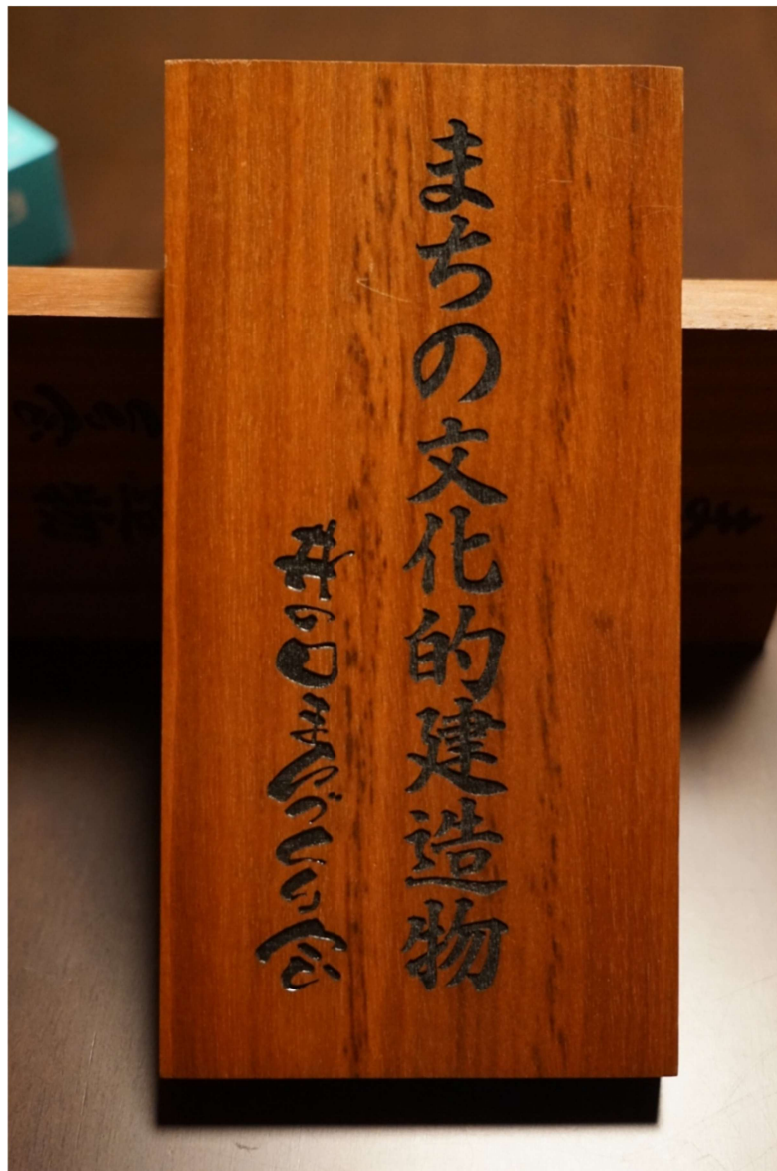 まちの文化的建造物
井の口まちづくり会